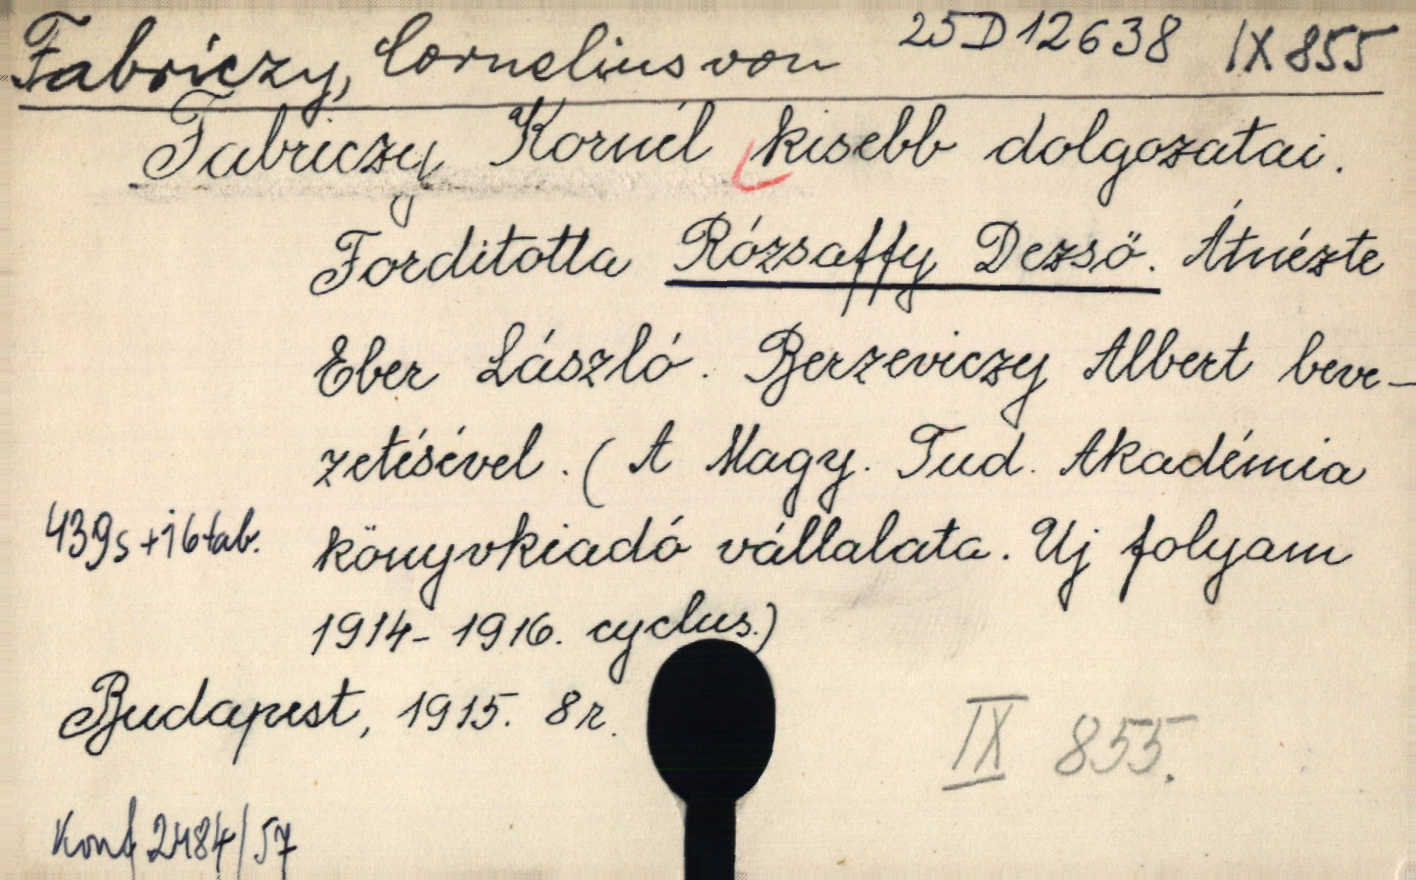 Fabriczy, Cornelius von 25D12638 IX 855
Fabriczy Kornél kisebb dolgozatai.
Forditotta Rózsaffy Dezső. Átnézte
Éber László. Berzeviczy Albert beve-
zetésével. (A Magy. Tud. Akadémia
439s+16tab. könyvkiadó vállalata. Uj folyam
1914-1916. cyclus.)
Budapest, 1915. 8r.
IX 855.
Konf 2484/57